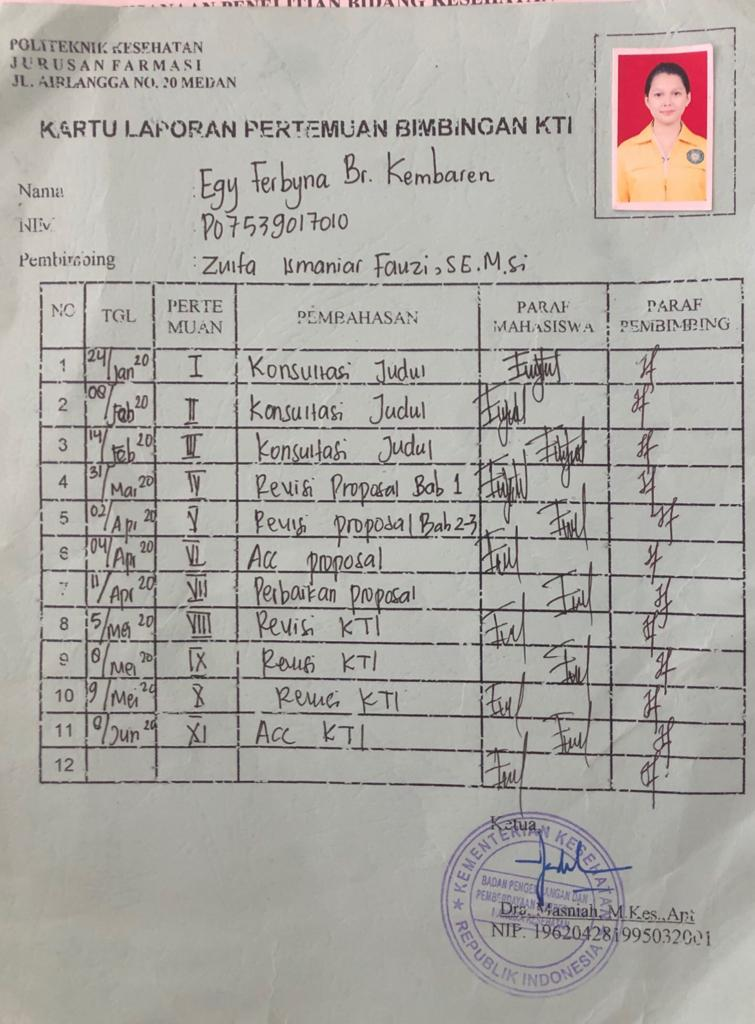 POLITEKNIK KESEHATAN
JURUSAN FARMASI
JL. AIRLANGGA NO. 20 MEDAN
KARTU LAPORAN PERTEMUAN BIMBINGAN KTI
Nama : Egy Ferbyna Br. Kembaren
NIM : P07539017010
Pembimbing : Zulfa Ismaniar Fauzi, SE.M.Si
NO TGL PERTE MUAN PEMBAHASAN PARAF MAHASISWA PARAF PEMBIMBING
1 24/Jan 20 I Konsultasi Judul
2 08/Feb 20 II Konsultasi Judul
3 14/Feb 20 III Konsultasi Judul
4 31/Mar 20 IV Revisi Proposal Bab 1
5 02/Apr 20 V Revisi proposal Bab 2-3
6 04/Apr 20 VI Acc proposal
7 11/Apr 20 VII Perbaikan proposal
8 5/Mei 20 VIII Revisi KTI
9 8/Mei 20 IX Revisi KTI
10 9/Mei 20 X Revisi KTI
11 8/Jun 20 XI Acc KTI
12
Ketua,
KEMENTERIAN KESEHATAN
BADAN PENGEMBANGAN DAN
PEMBERDAYAAN
REPUBLIK INDONESIA
Dra. Masniah, M.Kes., Apt
NIP. 196204281995032001